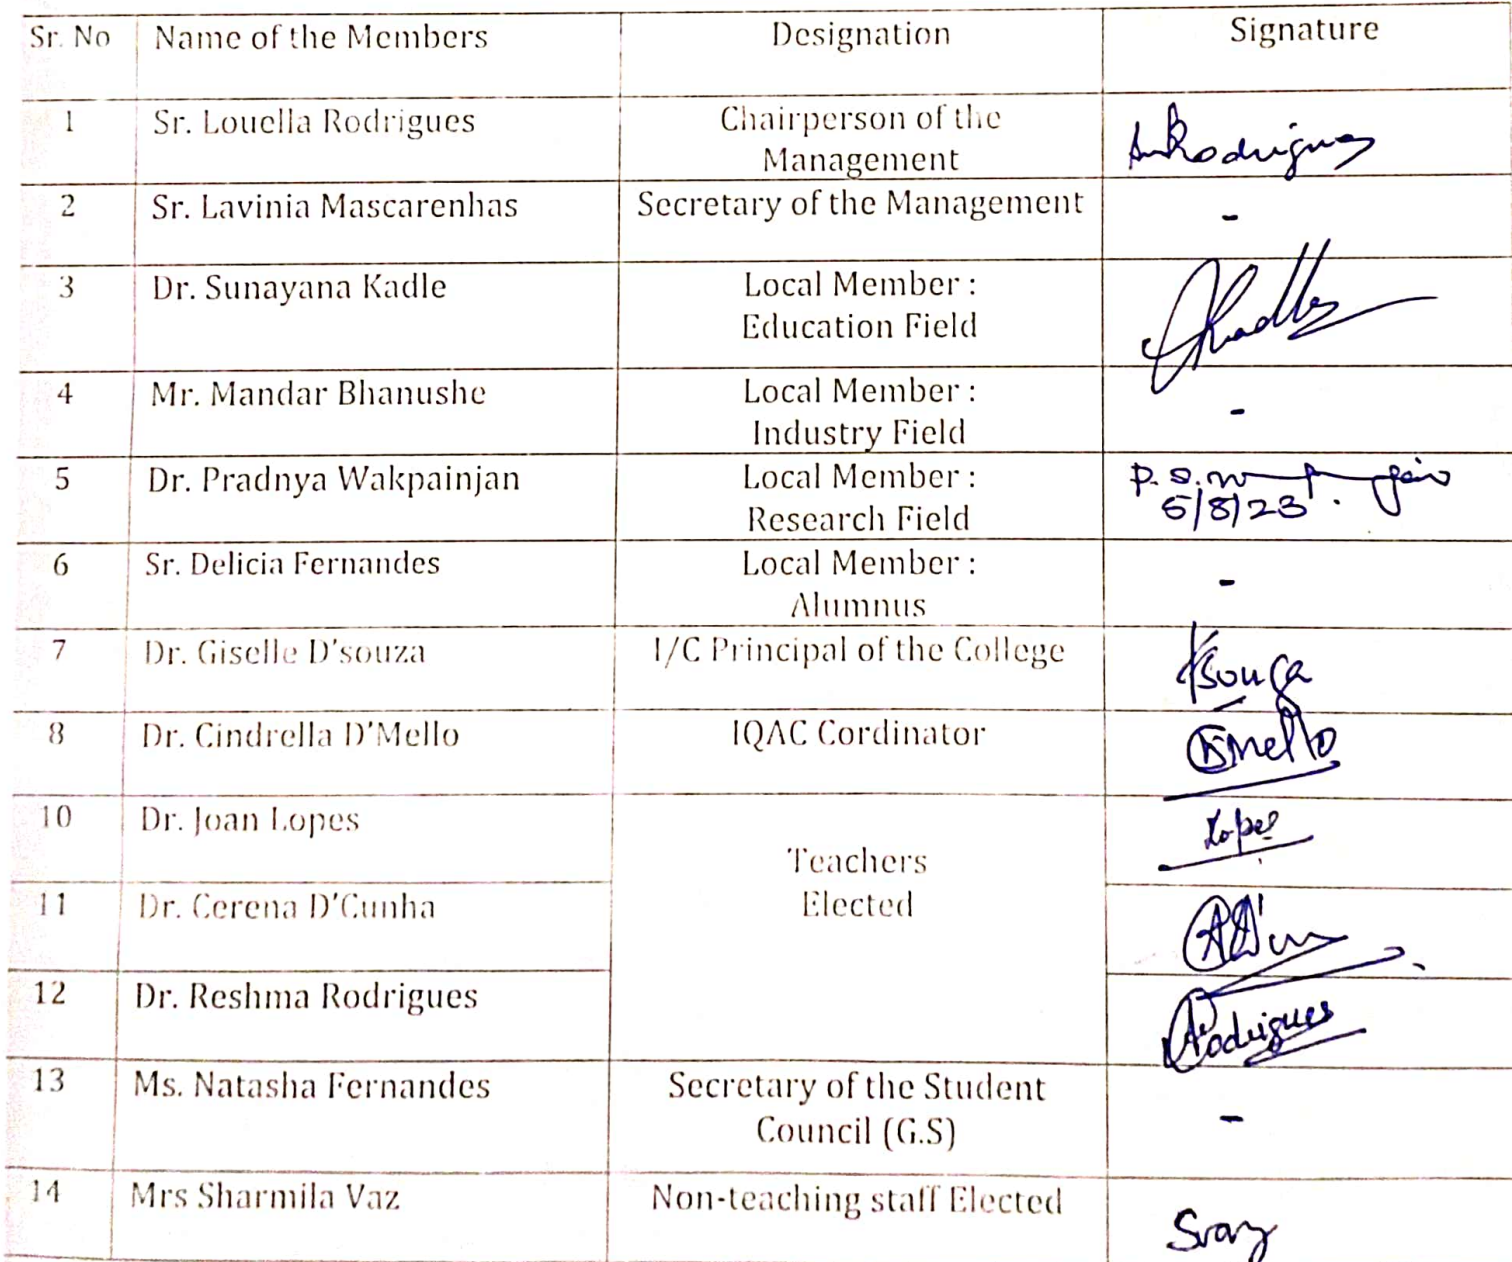 Sr. No Name of the Members Designation Signature
1 Sr. Louella Rodrigues Chairperson of the
Management
Rodrigues
2 Sr. Lavinia Mascarenhas Secretary of the Management -
3 Dr. Sunayana Kadle Local Member :
Education Field
4 Mr. Mandar Bhanushe Local Member : -
Industry Field
5 Dr. Pradnya Wakpainjan Local Member : P. S.
Research Field 5/8/23
6 Sr. Delicia Fernandes Local Member : -
Alumnus
7 Dr. Giselle D'souza I/C Principal of the College
8 Dr. Cindrella D'Mello IQAC Cordinator
10 Dr. Joan Lopes Lopes
Teachers
Elected
11 Dr. Cerena D'Cunha
12 Dr. Reshma Rodrigues Rodrigues
13 Ms. Natasha Fernandes Secretary of the Student
Council (G.S) -
14 Mrs Sharmila Vaz Non-teaching staff Elected
Svaz